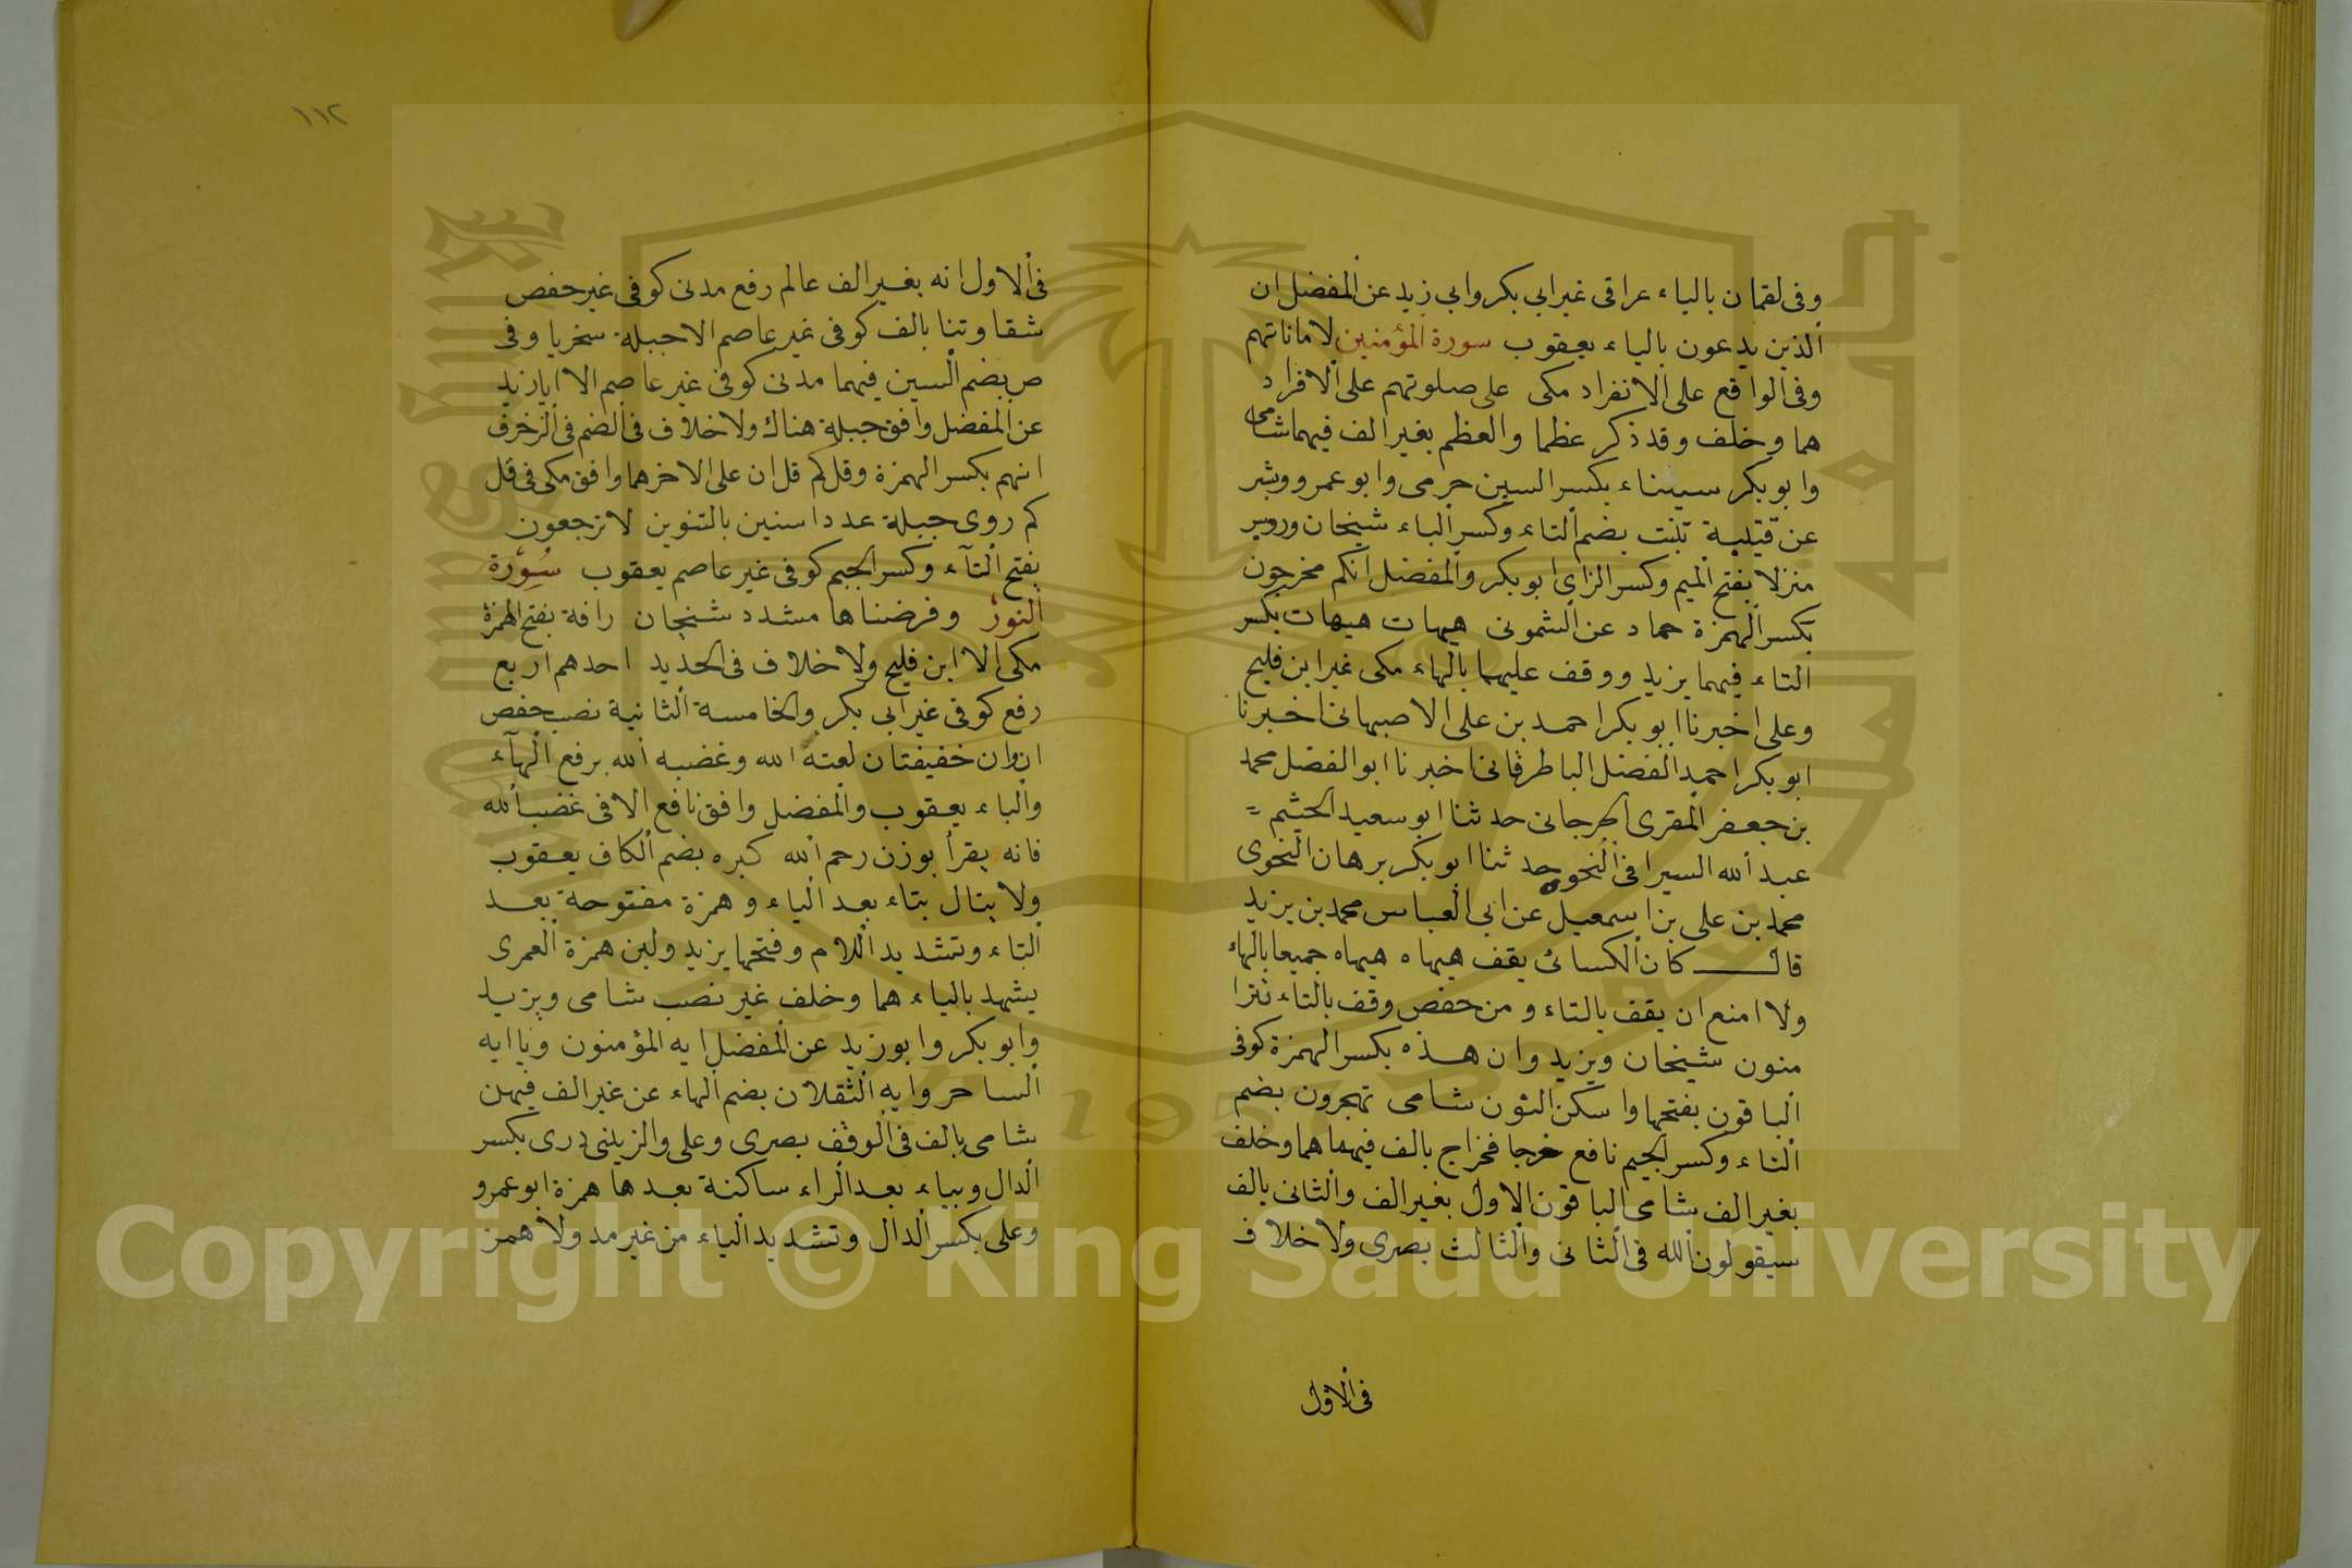 وفى لقمان بالياء عراقى غير ابى بكر وابى زيد عن المفضل ان
الذين يدعون بالياء يعقوب سورة المؤمنين لاماناتهم
وفى الواقع على الانفراد مكى على صلوتهم على الافراد
هما وخلف وقد ذكر عظما والعظم بغير الف فيهما شامى
وابو بكر سيناء بكسر السين حرمى وابو عمرو وبشر
عن قتيبة تنبت بضم التاء وكسر الباء شيخان ورويس
منزلا بفتح الميم وكسر الزاى ابو بكر والمفضل انكم مخرجون
بكسر الهمزة حماد عن الشمونى هيهات هيهات بكسر
التاء فيهما يزيد ووقف عليهما بالهاء مكى غير ابن فليح
وعلى اخبرنا ابو بكر احمد بن على الاصبهانى اخبرنا
ابو بكر احمد الفضل الباطرقانى اخبرنا ابو الفضل محمد
بن جعفر المقرى الجرجانى حدثنا ابو سعيد الحشيم =
عبد الله السيرافى النحوى حدثنا ابو بكر برهان النحوى
محمد بن على بن اسمعيل عن ابى العباس محمد بن يزيد
قال كان الكسائى يقف هيهاه هيهاه جميعا بالهاء
ولا امنع ان يقف بالتاء ومن حفص وقف بالتاء تترا
منون شيخان ويزيد وان هذه بكسر الهمزة كوفى
الباقون بفتحها واسكن النون شامى تهجرون بضم
التاء وكسر الجيم نافع خرجا فخراج بالف فيهما هما وخلف
بغير الف شامى الباقون الاول بغير الف والثانى بالف
سيقولون الله فى الثانى والثالث بصرى ولا خلاف
فى الاول
١١٢
فى الاول انه بغير الف عالم رفع مدنى كوفى غير حفص
شقاوتنا بالف كوفى غير عاصم الا جبلة سخريا وفى
ص بضم السين فيهما مدنى كوفى غير عاصم الا ابا زيد
عن المفضل وافق جبلة هناك ولا خلاف فى الضم فى الزخرف
انهم بكسر الهمزة وقل كم قل ان على الاخر هما وافق مكى فى قل
كم روى جبلة عددا سنين بالتنوين لا ترجعون
بفتح التآء وكسر الجيم كوفى غير عاصم يعقوب سورة
النور وفرضناها مشدد شيخان رافة بفتح الهمزة
مكى الا ابن فليح ولا خلاف فى الحديد احدهم اربع
رفع كوفى غير ابى بكر والخامسة الثانية نصب حفص
ان وان خفيفتان لعنة الله وغضبه الله برفع الهآء
والباء يعقوب والمفضل وافق نافع الا فى غضب الله
فانه يقرأ بوزن رحم الله كبره بضم الكاف يعقوب
ولا يتال بتاء بعد الياء وهمزة مفتوحة بعد
التاء وتشديد اللام وفتحها يزيد ولين همزة العمرى
يشهد بالياء هما وخلف غير نصب شامى ويزيد
وابو بكر وابو زيد عن المفضل ايه المؤمنون ويا ايه
الساحر وايه الثقلان بضم الهاء عن غير الف فيهن
شامى بالف فى الوقف بصرى وعلى والزينبى درى بكسر
الدال وبياء بعد الراء ساكنة بعدها همزة ابو عمرو
وعلى بكسر الدال وتشديد الياء من غير مد ولا همز
Copyright © King Saud University